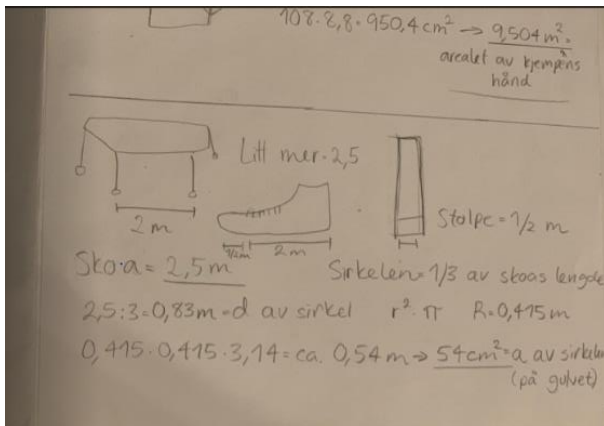 108·8,8=950,4cm² → 9,504m².
arealet av kjempens
hånd
Litt mer·2,5
2m
1/2m
2m
Stolpe=1/2 m
Sko·a= 2,5m
Sirkelen=1/3 av skoas lengde
2,5:3=0,83m=d av sirkel r²·π R=0,415m
0,415·0,415·3,14=ca. 0,54m→ 54cm²=a av sirkelen
(på gulvet)